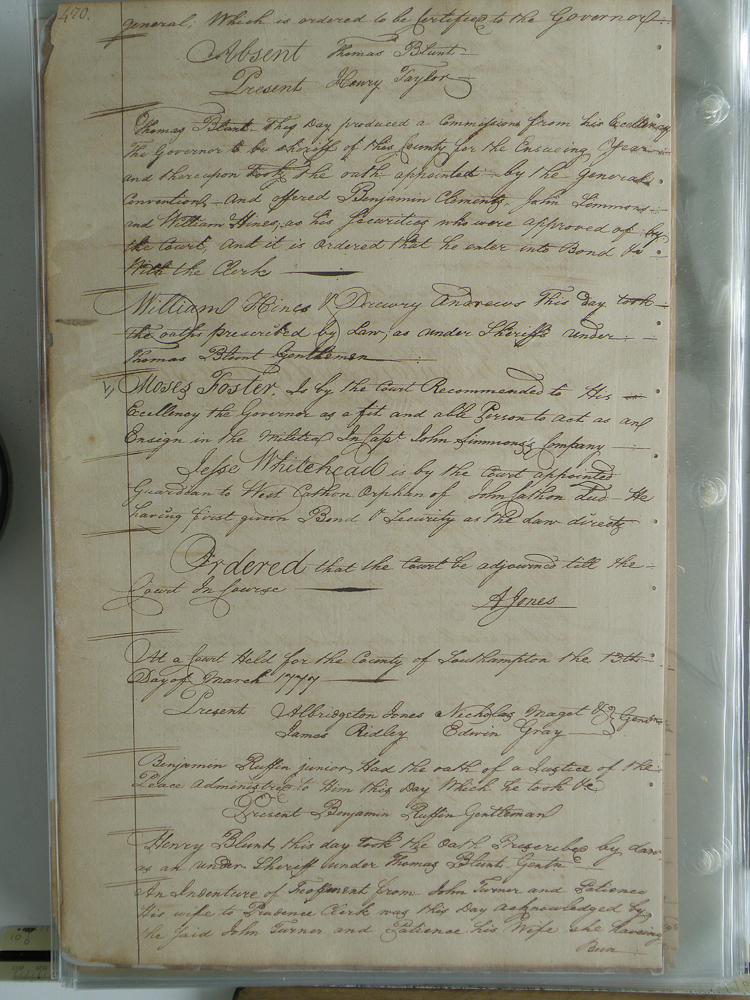 470.
general, Which is ordered to be Certified to the Governor
Absent Thomas Blunt
Present Henry Taylor
Thomas Blunt This Day produced a Commission from his Excellency
The Governor to be sheriff of this County for the Ensueing Year
and thereupon took the oath appointed by the General
Convention, and offered Benjamin Clements, John Simmons
and William Hines, as his Securities who were approved of by
the Court, And it is Ordered that he enter into Bond &c
With the Clerk
William Hines & Drewry Andrews This Day took
the oaths prescribed by Law, as under Sheriffs under
Thomas Blunt Gentlemen
Moses Foster, Is by the Court Recommended to His
Excellency the Governor as a fit and able Person to act as an
Ensign in the Militia In Capt. John Simmons's Company
Jesse Whitehead is by the Court appointed
Guardian to West Cathon Orphan of John Cathon decd. He
having first given Bond & Security as the Law directs
Ordered that the Court be adjourned till the
Court In Course
A Jones
At a Court Held for the County of Southampton the 13th
Day of March 1777
Present Albridgston Jones Nicholas Maget & Gentn
James Ridley Edwin Gray
Benjamin Ruffin junior, Had the oath of a Justice of the
Peace Administred to Him this day Which he took &c
Present Benjamin Ruffin Gentleman
Henry Blunt this day took the Oath Prescribed by Law
as an under Sheriff under Thomas Blunt Gentn
An Indenture of Feofment from John Turner and Patience
His wife to Prudence Clerk was this Day acknowledged by
the said John Turner and Patience his Wife she having
Been